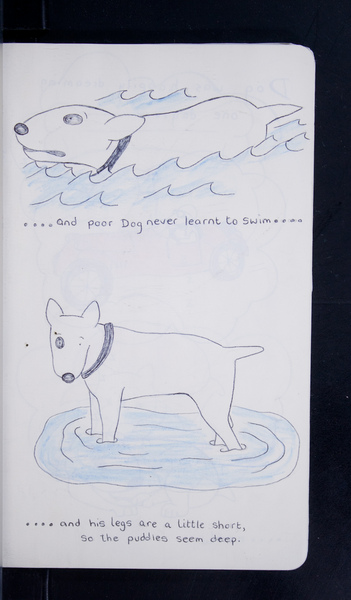 ....and poor Dog never learnt to swim.....
.... and his legs are a little short,
so the puddles seem deep.